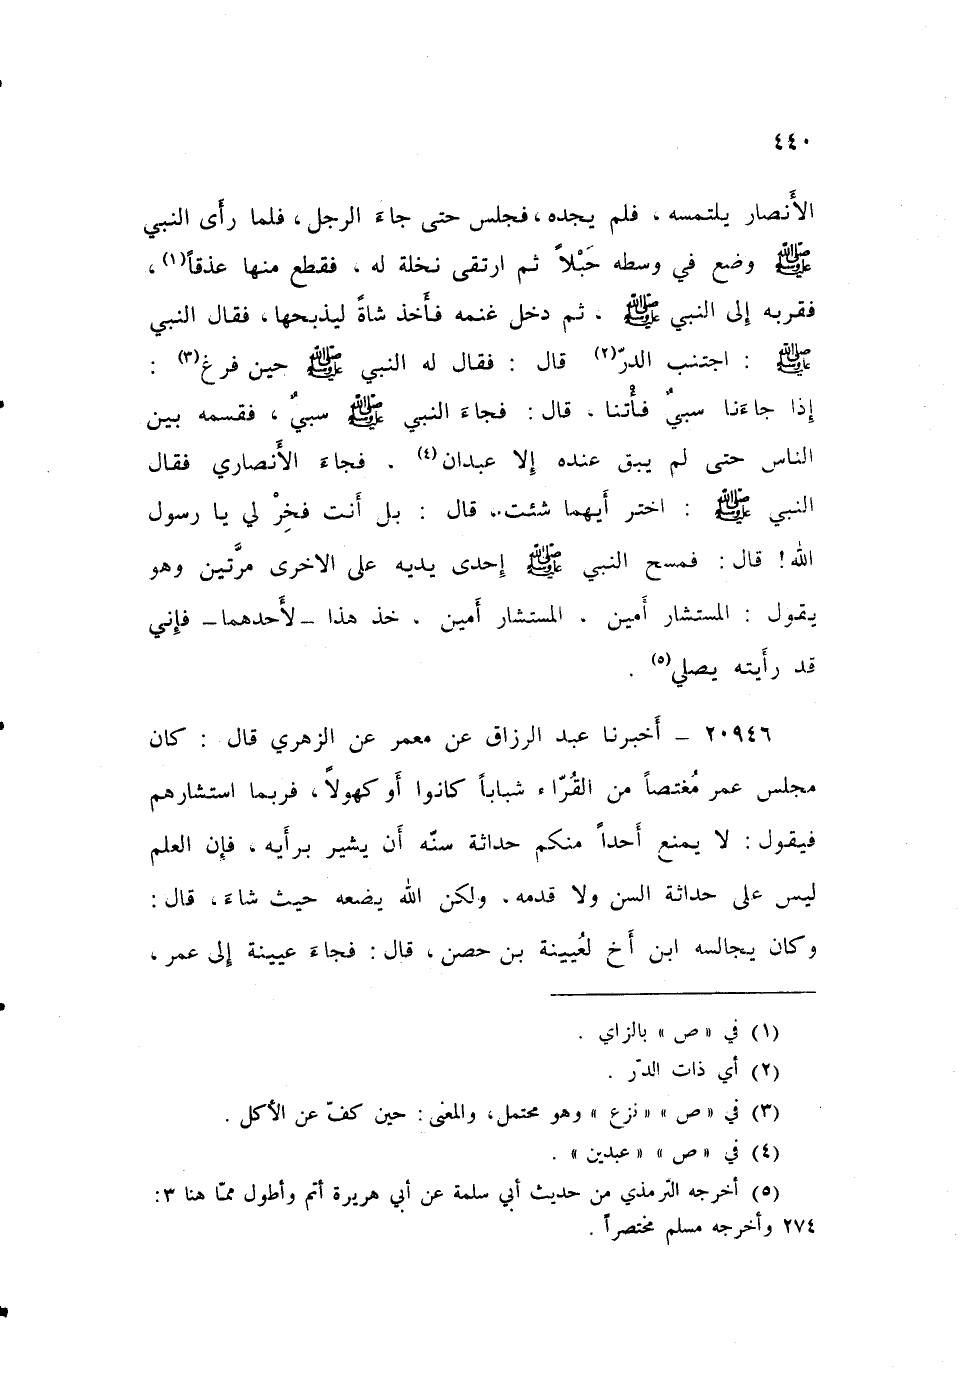 ٤٤٠
الأَنصار يلتمسه ، فلم يجده ، فجلس حتى جاءَ الرجل ، فلما رأَى النبي
ﷺ وضع في وسطه حَبْلاً ثم ارتقى نخلة له ، فقطع منها عذقاً(١) ،
فقربه إلى النبي ﷺ ، ثم دخل غنمه فأَخذ شاةً ليذبحها ، فقال النبي
ﷺ : اجتنب الدرّ(٢) قال : فقال له النبي ﷺ حين فرغ(٣) :
إذا جاءَنا سبيٌ فأْتنا ، قال : فجاءَ النبي ﷺ سبيٌ ، فقسمه بين
الناس حتى لم يبق عنده إلا عبدان(٤) . فجاءَ الأَنصاري فقال
النبي ﷺ : اختر أَيهما شئت ، قال : بل أَنت فخِرْ لي يا رسول
الله ! قال : فمسح النبي ﷺ إحدى يديه على الاخرى مرَّتين وهو
يقول : المستشار أَمين . المستشار أَمين . خذ هذا – لأَحدهما – فإني
قد رأَيته يصلي(٥) .
٢٠٩٤٦ – أَخبرنا عبد الرزاق عن معمر عن الزهري قال : كان
مجلس عمر مُغتصاً من القُرّاء شباباً كانوا أَو كهولاً ، فربما استشارهم
فيقول : لا يمنع أَحداً منكم حداثة سنّه أَن يشير برأَيه ، فإن العلم
ليس على حداثة السن ولا قدمه . ولكن الله يضعه حيث شاءَ ، قال :
وكان يجالسه ابن أَخ لعُيينة بن حصن ، قال : فجاءَ عيينة إلى عمر ،
(١) في « ص » بالزاي .
(٢) أي ذات الدّر .
(٣) في « ص » « نزع » وهو محتمل ، والمعنى : حين كفّ عن الأكل .
(٤) في « ص » « عبدين » .
(٥) أخرجه الترمذي من حديث أبي سلمة عن أبي هريرة أتم وأطول ممّا هنا ٣ :
٢٧٤ وأخرجه مسلم مختصراً .